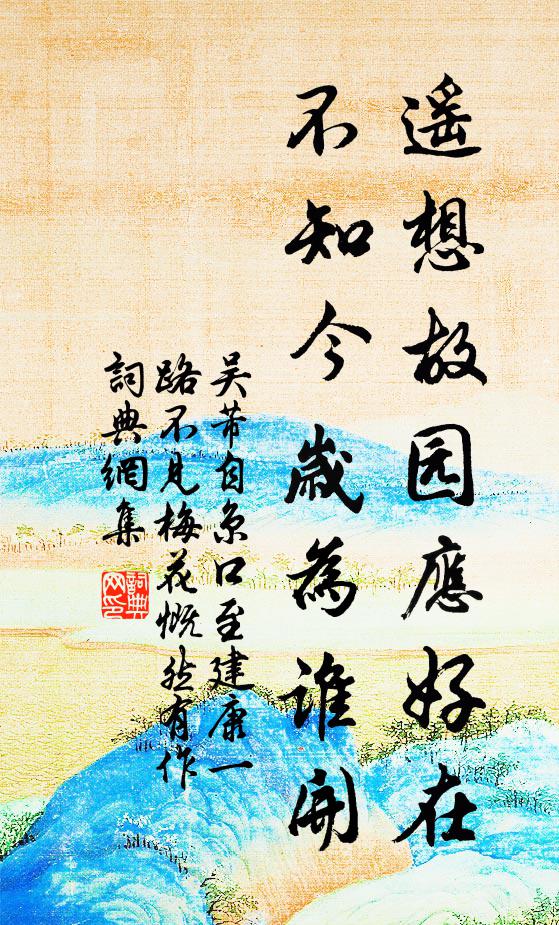 遥想故园應好在
不知今歲為誰開
吴芾自京口至建康一
路不見梅花慨然有作
詞典網集
詞典
网印